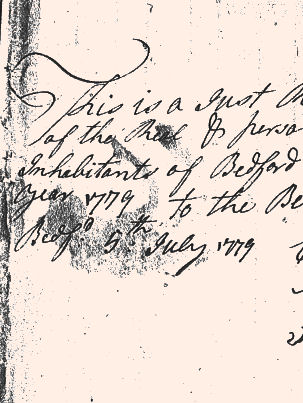 This is a Just
of the Real & perso
Inhabitants of Bedford
Year 1779 to the Be
Bedfd 5th July 1779